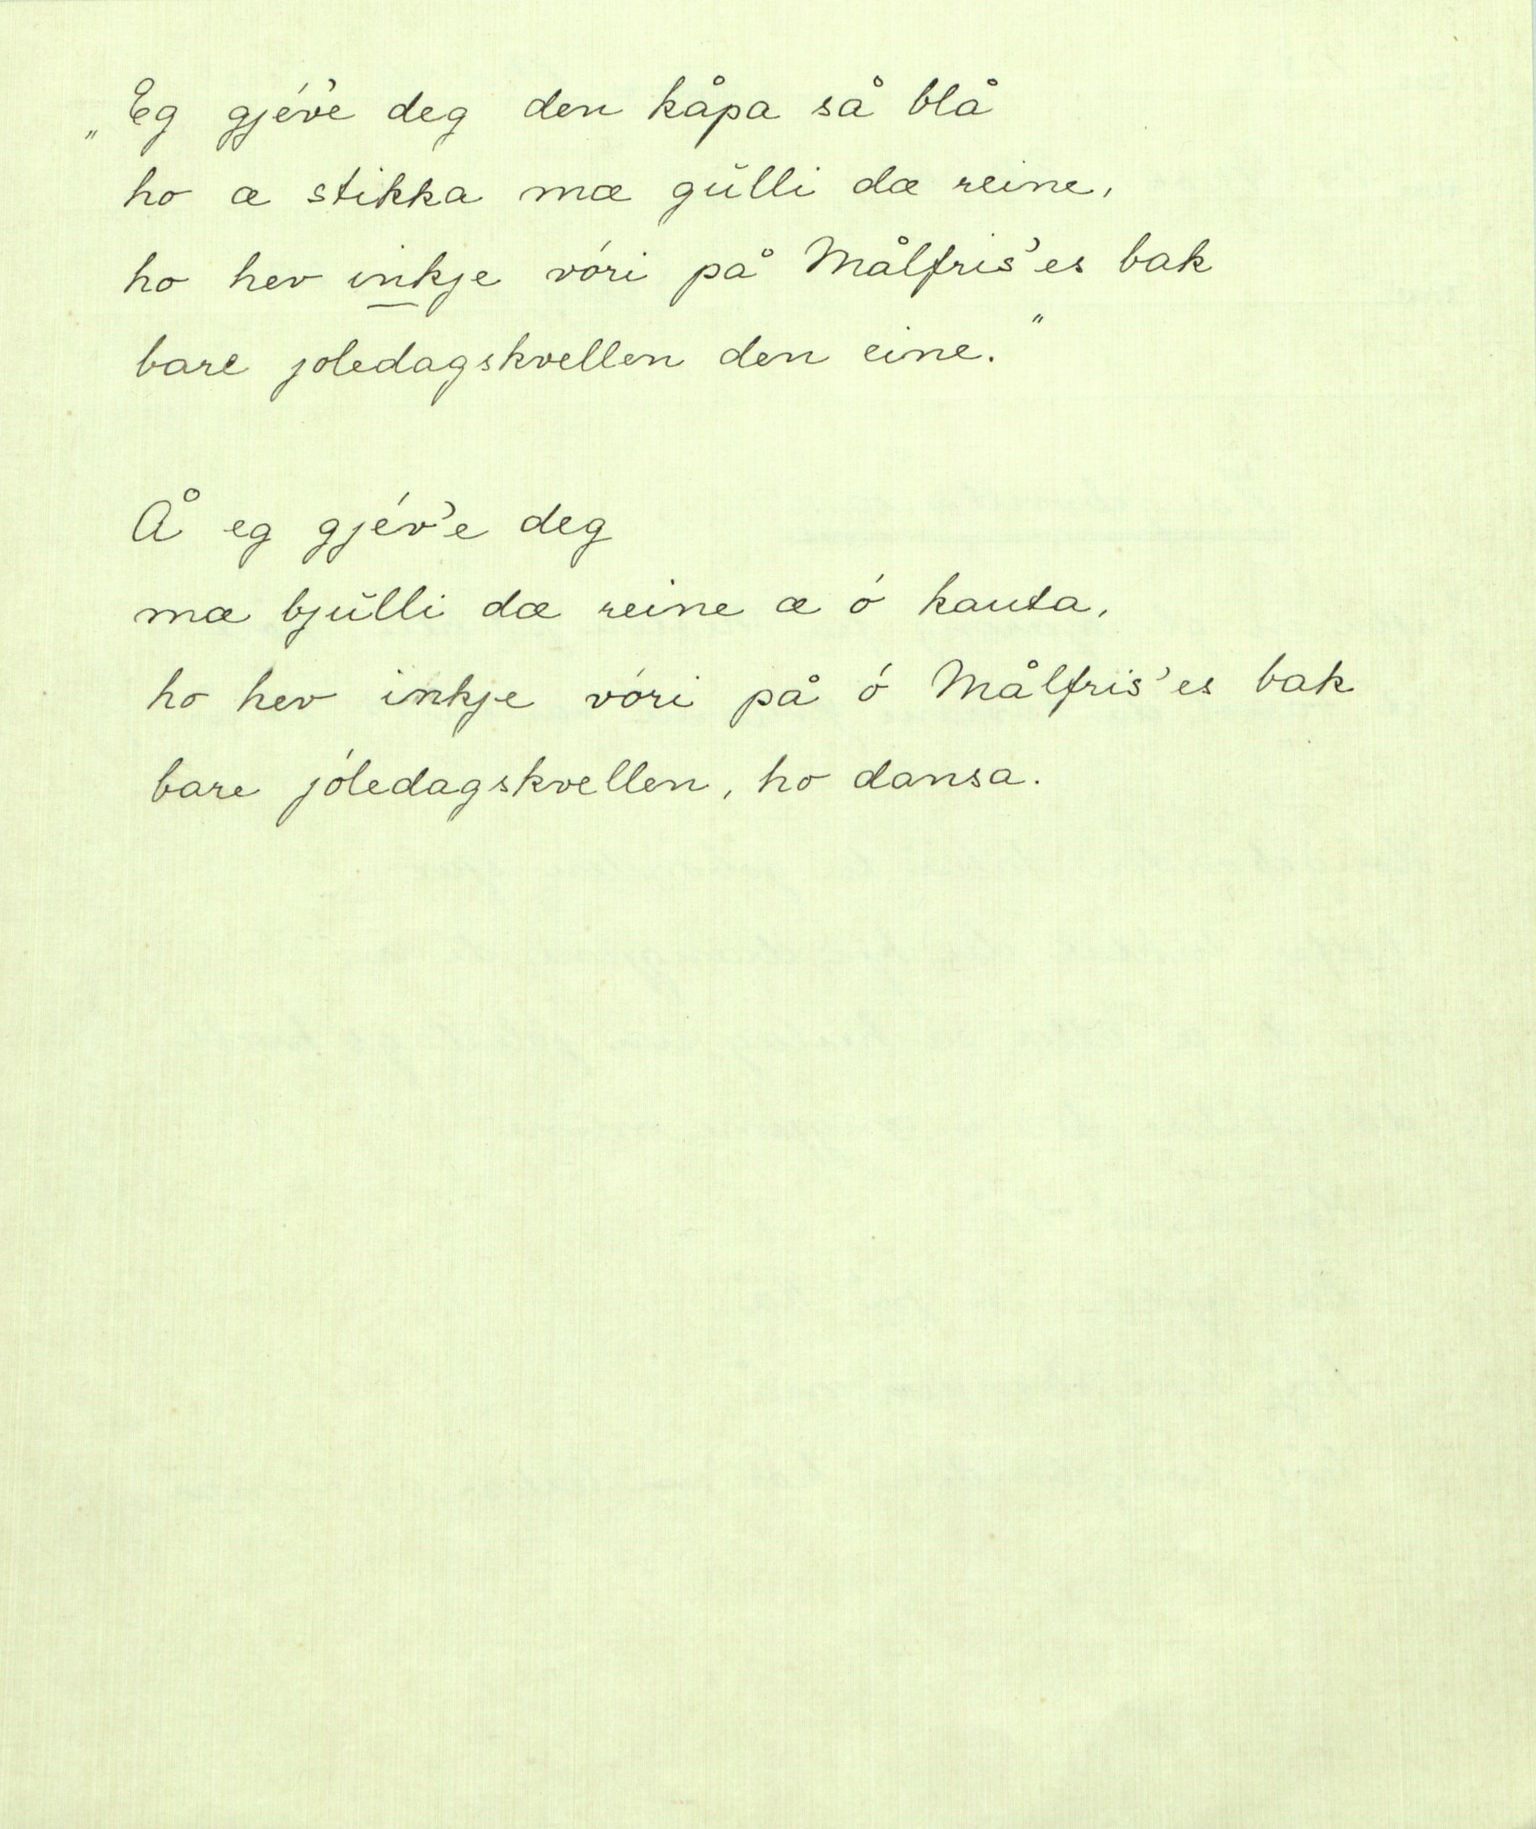 „Eg gjév'e deg den kåpa så blå
ho æ stikka mæ gŭlli dæ reine,
ho hev inkje vóri på Målfris'es bak
bare joledagskvellen den eine."
Å eg gjév'e deg
mæ bjŭlli dæ reine æ ó kanta,
ho hev inkje vóri på ó Målfris'es bak
bare jóledagskvellen, ho dansa.